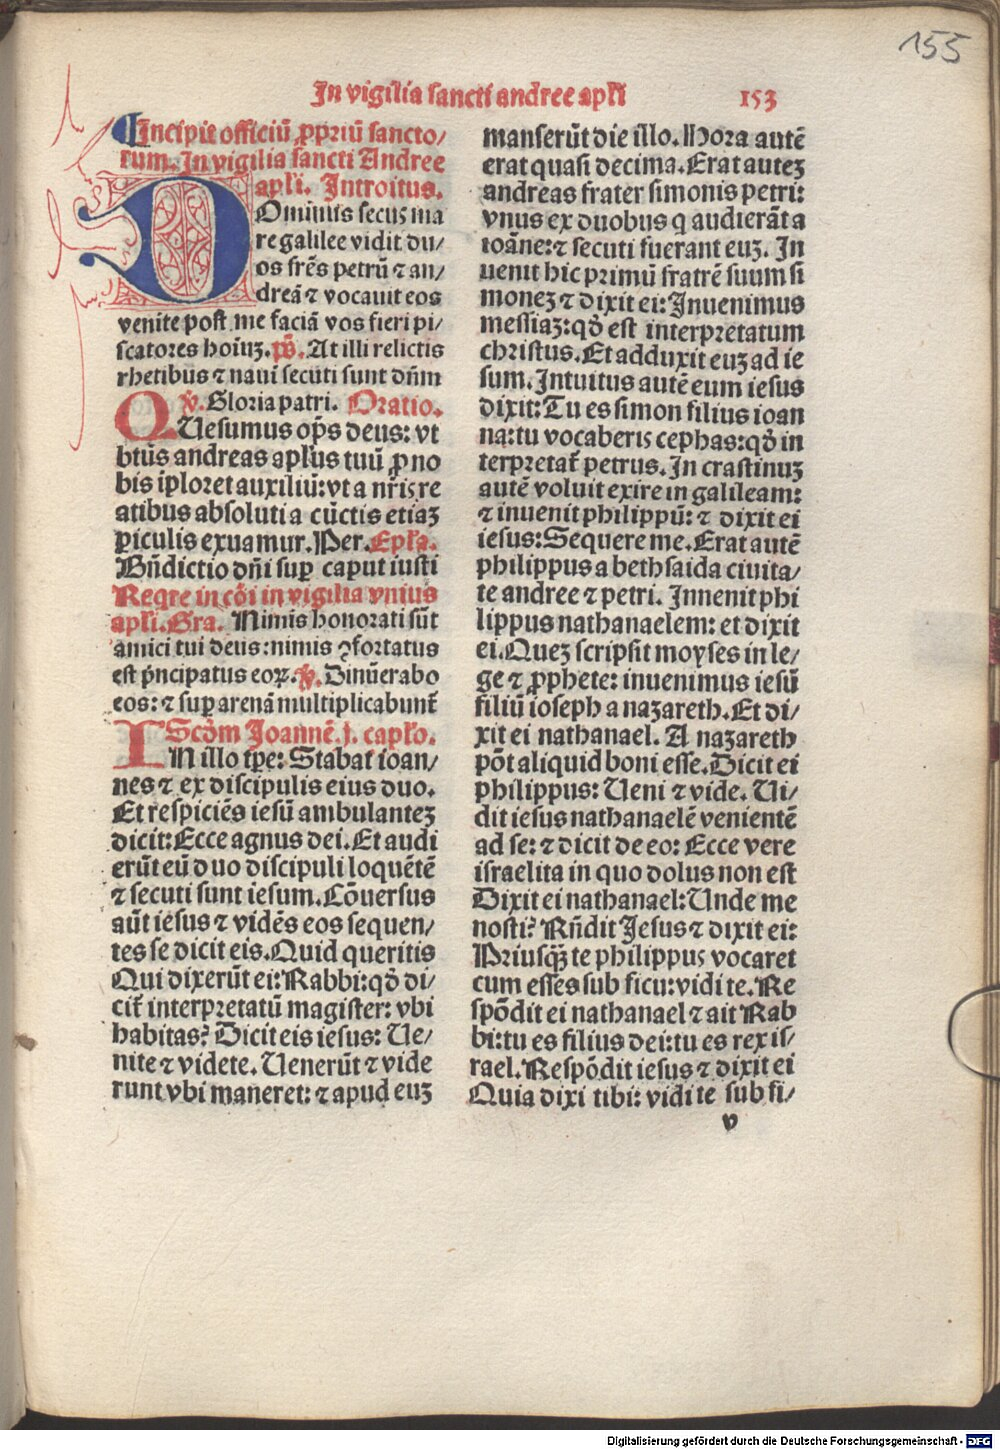 155
In vigilia sancti andree apl̄i 153
Incipit officiū ꝓpriū sancto/
rum. In vigilia sancti Andree
apl̄i. Introitus.
DOminus secus ma
re galilee vidit du/
os fr̄es petrū ⁊ an/
dreā ⁊ vocauit eos
venite post me faciā vos fieri pi/
scatores hoīuʒ. p̄s. At illi relictis
rhetibus ⁊ naui secuti sunt dn̄m
℣. Gloria patri. Oratio.
QUesumus op̄s deus: vt
bt̄us andreas apl̄us tuū ꝓ no
bis īploret auxiliū: vt a nr̄is re
atibus absoluti a cūctis etiaʒ
ꝑiculis exuamur. Per. Epl̄a.
Bn̄dictio dn̄i suꝑ caput iusti
Reqre in cōi in vigilia vnius
apl̄i. Gra. Nimis honorati sūt
amici tui deus: nimis ꝯfortatus
est pn̄cipatus eoꝝ. ℣. Dinūerabo
eos: ⁊ suꝑ arenā multiplicabunt̄
Scd̄m Joannē. j. caplo.
IN illo tp̄e: Stabat ioan/
nes ⁊ ex discipulis eius duo.
Et respiciēs iesū ambulanteʒ
dicit: Ecce agnus dei. Et audi
erūt eū duo discipuli loquētē
⁊ secuti sunt iesum. Cōuersus
aūt iesus ⁊ vidēs eos sequen/
tes se dicit eis. Quid queritis
Qui dixerūt ei: Rabbi: qd̄ di/
cit̄ interpretatū magister: vbi
habitas? Dicit eis iesus: Ue/
nite ⁊ videte. Uenerūt ⁊ vide
runt vbi maneret: ⁊ apud euʒ
manserūt die illo. Hora autē
erat quasi decima. Erat auteʒ
andreas frater simonis petri:
vnus ex duobus q audierāt a
ioāne: ⁊ secuti fuerant euʒ. In
uenit hic primū fratrē suum si
moneʒ ⁊ dixit ei: Inuenimus
messiaʒ: qd̄ est interpretatum
christus. Et adduxit euʒ ad ie
sum. Intuitus autē eum iesus
dixit: Tu es simon filius ioan
na: tu vocaberis cephas: qd̄ in
terpretat̄ petrus. In crastinuʒ
autē voluit exire in galileam:
⁊ inuenit philippū: ⁊ dixit ei
iesus: Sequere me. Erat autē
philippus a bethsaida ciuita/
te andree ⁊ petri. Innenit phi
lippus nathanaelem: et dixit
ei. Queʒ scripsit moyses in le/
ge ⁊ ꝓphete: inuenimus iesū
filiū ioseph a nazareth. Et di/
xit ei nathanael. A nazareth
pōt aliquid boni esse. Dicit ei
philippus: Ueni ⁊ vide. Ui/
dit iesus nathanaelē venientē
ad se: ⁊ dicit de eo: Ecce vere
israelita in quo dolus non est
Dixit ei nathanael: Unde me
nosti? Rn̄dit Jesus ⁊ dixit ei:
Priusqʒ̄ te philippus vocaret
cum esses sub ficu: vidi te. Re
spōdit ei nathanael ⁊ ait Rab
bi: tu es filius dei: tu es rex is/
rael. Respōdit iesus ⁊ dixit ei
Quia dixi tibi: vidi te sub fi/
v
Digitalisierung gefördert durch die Deutsche Forschungsgemeinschaft - DFG